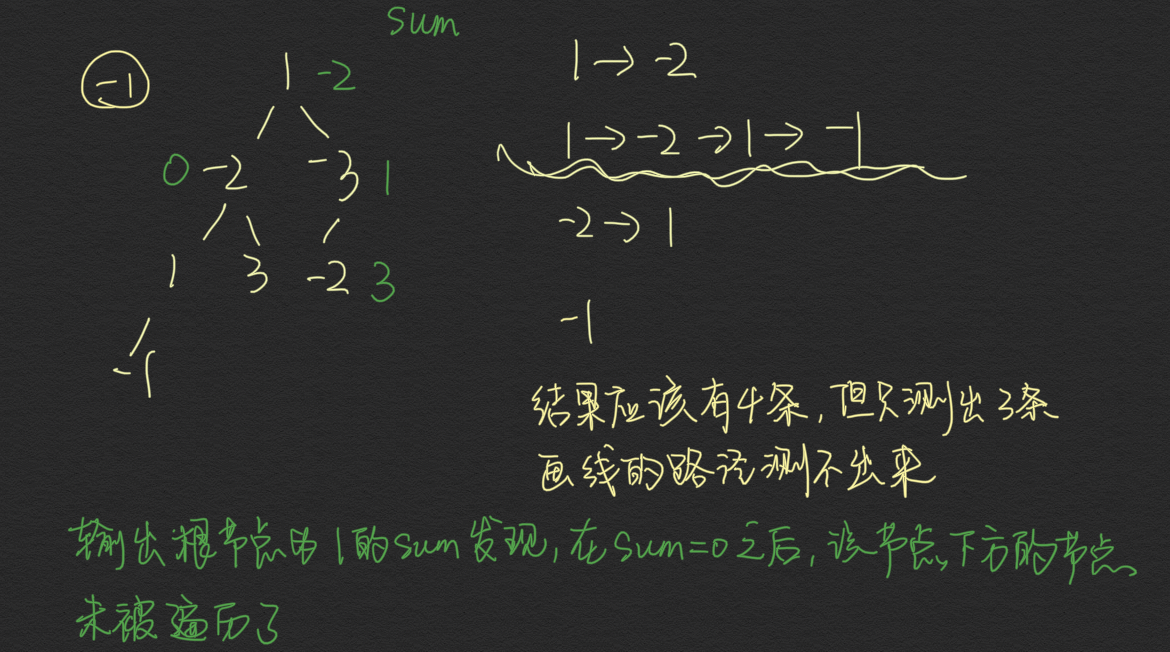 sum
-1
1 -2
0 -2 -3 1
1 3 -2 3
-1
1→-2
1→-2→1→-1
-2→1
-1
结果应该有4条,但只测出3条
画线的路径测不出来
输出根节点为1的sum发现,在sum=0之后,该节点下方的节点
未被遍历了